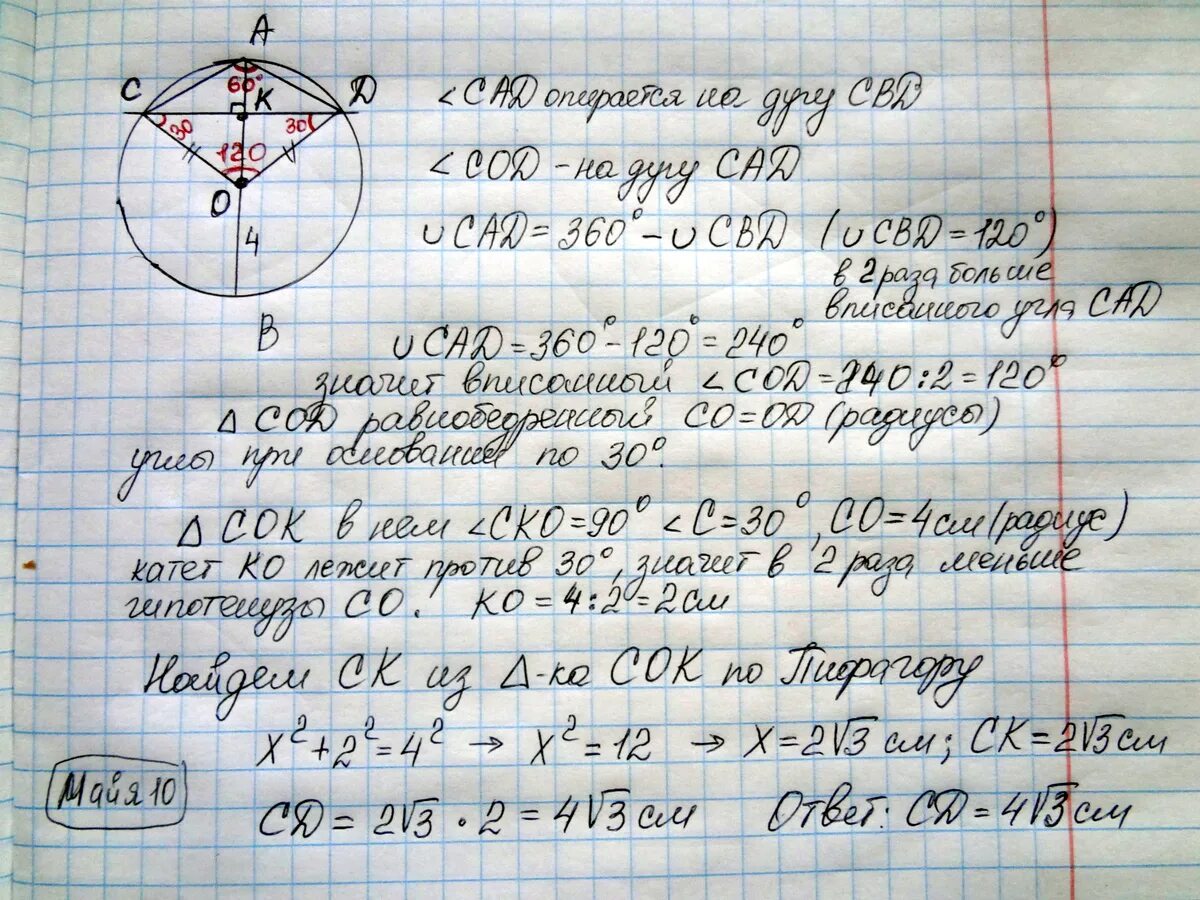 A
C
60°
K
D
30
30
120
O
4
B
∠CAD опирается на дугу CBD
∠COD - на дугу CAD
∪CAD = 360° - ∪ CBD (∪CBD = 120°)
в 2 раза больше
вписанного угла CAD
∪CAD = 360° - 120° = 240°
значит вписанный ∠COD = 240 : 2 = 120°
△ COD равнобедренный CO = OD (радиусы)
углы при основании по 30°.
△ COK в нем ∠CKO = 90° ∠C = 30°, CO = 4 см (радиус)
катет KO лежит против 30°, значит в 2 раза меньше
гипотенузы CO. KO = 4 : 2 = 2 см
Найдем CK из △-ка COK по Пифагору
x² + 2² = 4² → x² = 12 → x = 2√3 см; CK = 2√3 см
Майя 10
CD = 2√3 · 2 = 4√3 см Ответ: CD = 4√3 см